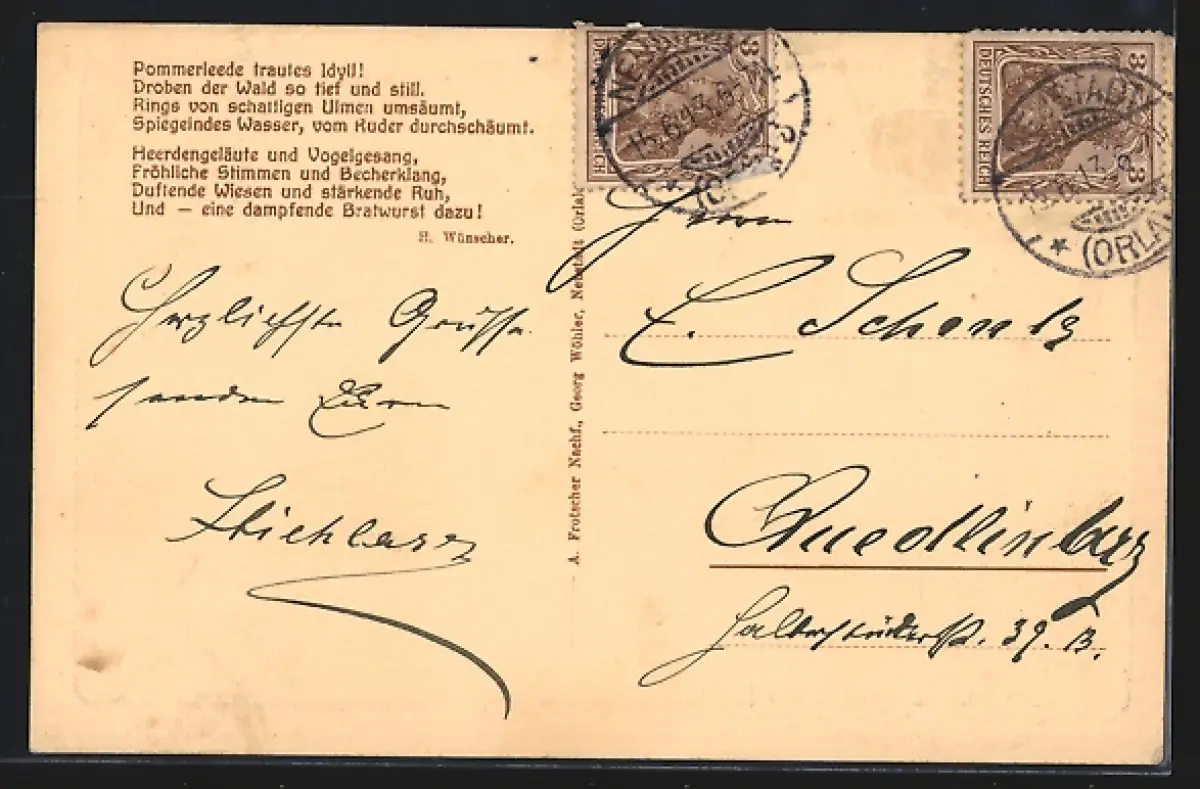 Pommerleede trautes Idyll!
Droben der Wald so tief und still.
Rings von schattigen Ulmen umsäumt,
Spiegelndes Wasser, vom Ruder durchschäumt.
Heerdengeläute und Vogelgesang,
Fröhliche Stimmen und Becherklang,
Duftende Wiesen und stärkende Ruh,
Und — eine dampfende Bratwurst dazu!
H. Wünscher.
Herzlichste Grüsse
senden Ihnen
A. Frotscher Nachf., Georg Wöhler, Neustadt (Orla)
3 3
DEUTSCHES REICH
15.6.13.
3 3
DEUTSCHES REICH
STADT
15.6.13.
* (ORLA
Herrn
C. Schenk
Quedlinburg
Halberstädterst. 39. B.